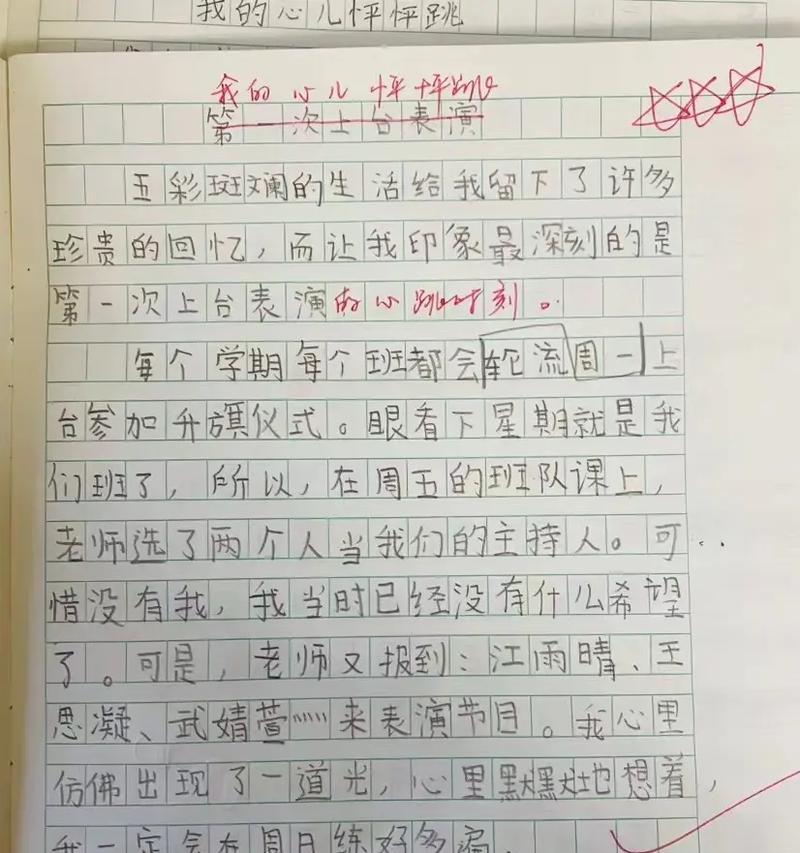 我的心儿怦怦跳
我的心儿怦怦跳
第一次上台表演
五彩斑斓的生活给我留下了许多
珍贵的回忆，而让我印象最深刻的是
第一次上台表演的心跳时刻。
每个学期每个班都会轮流周一上
台参加升旗仪式。眼看下星期就是我
们班了，所以，在周五的班队课上，
老师选了两个人当我们的主持人。可
惜没有我，我当时已经没有什么希望
了。可是，老师又报到：江雨晴、王
思凝、武婧萱……来表演节目。我心里
仿佛出现了一道光，心里默默地想着，
我一定会在周日练好多遍，